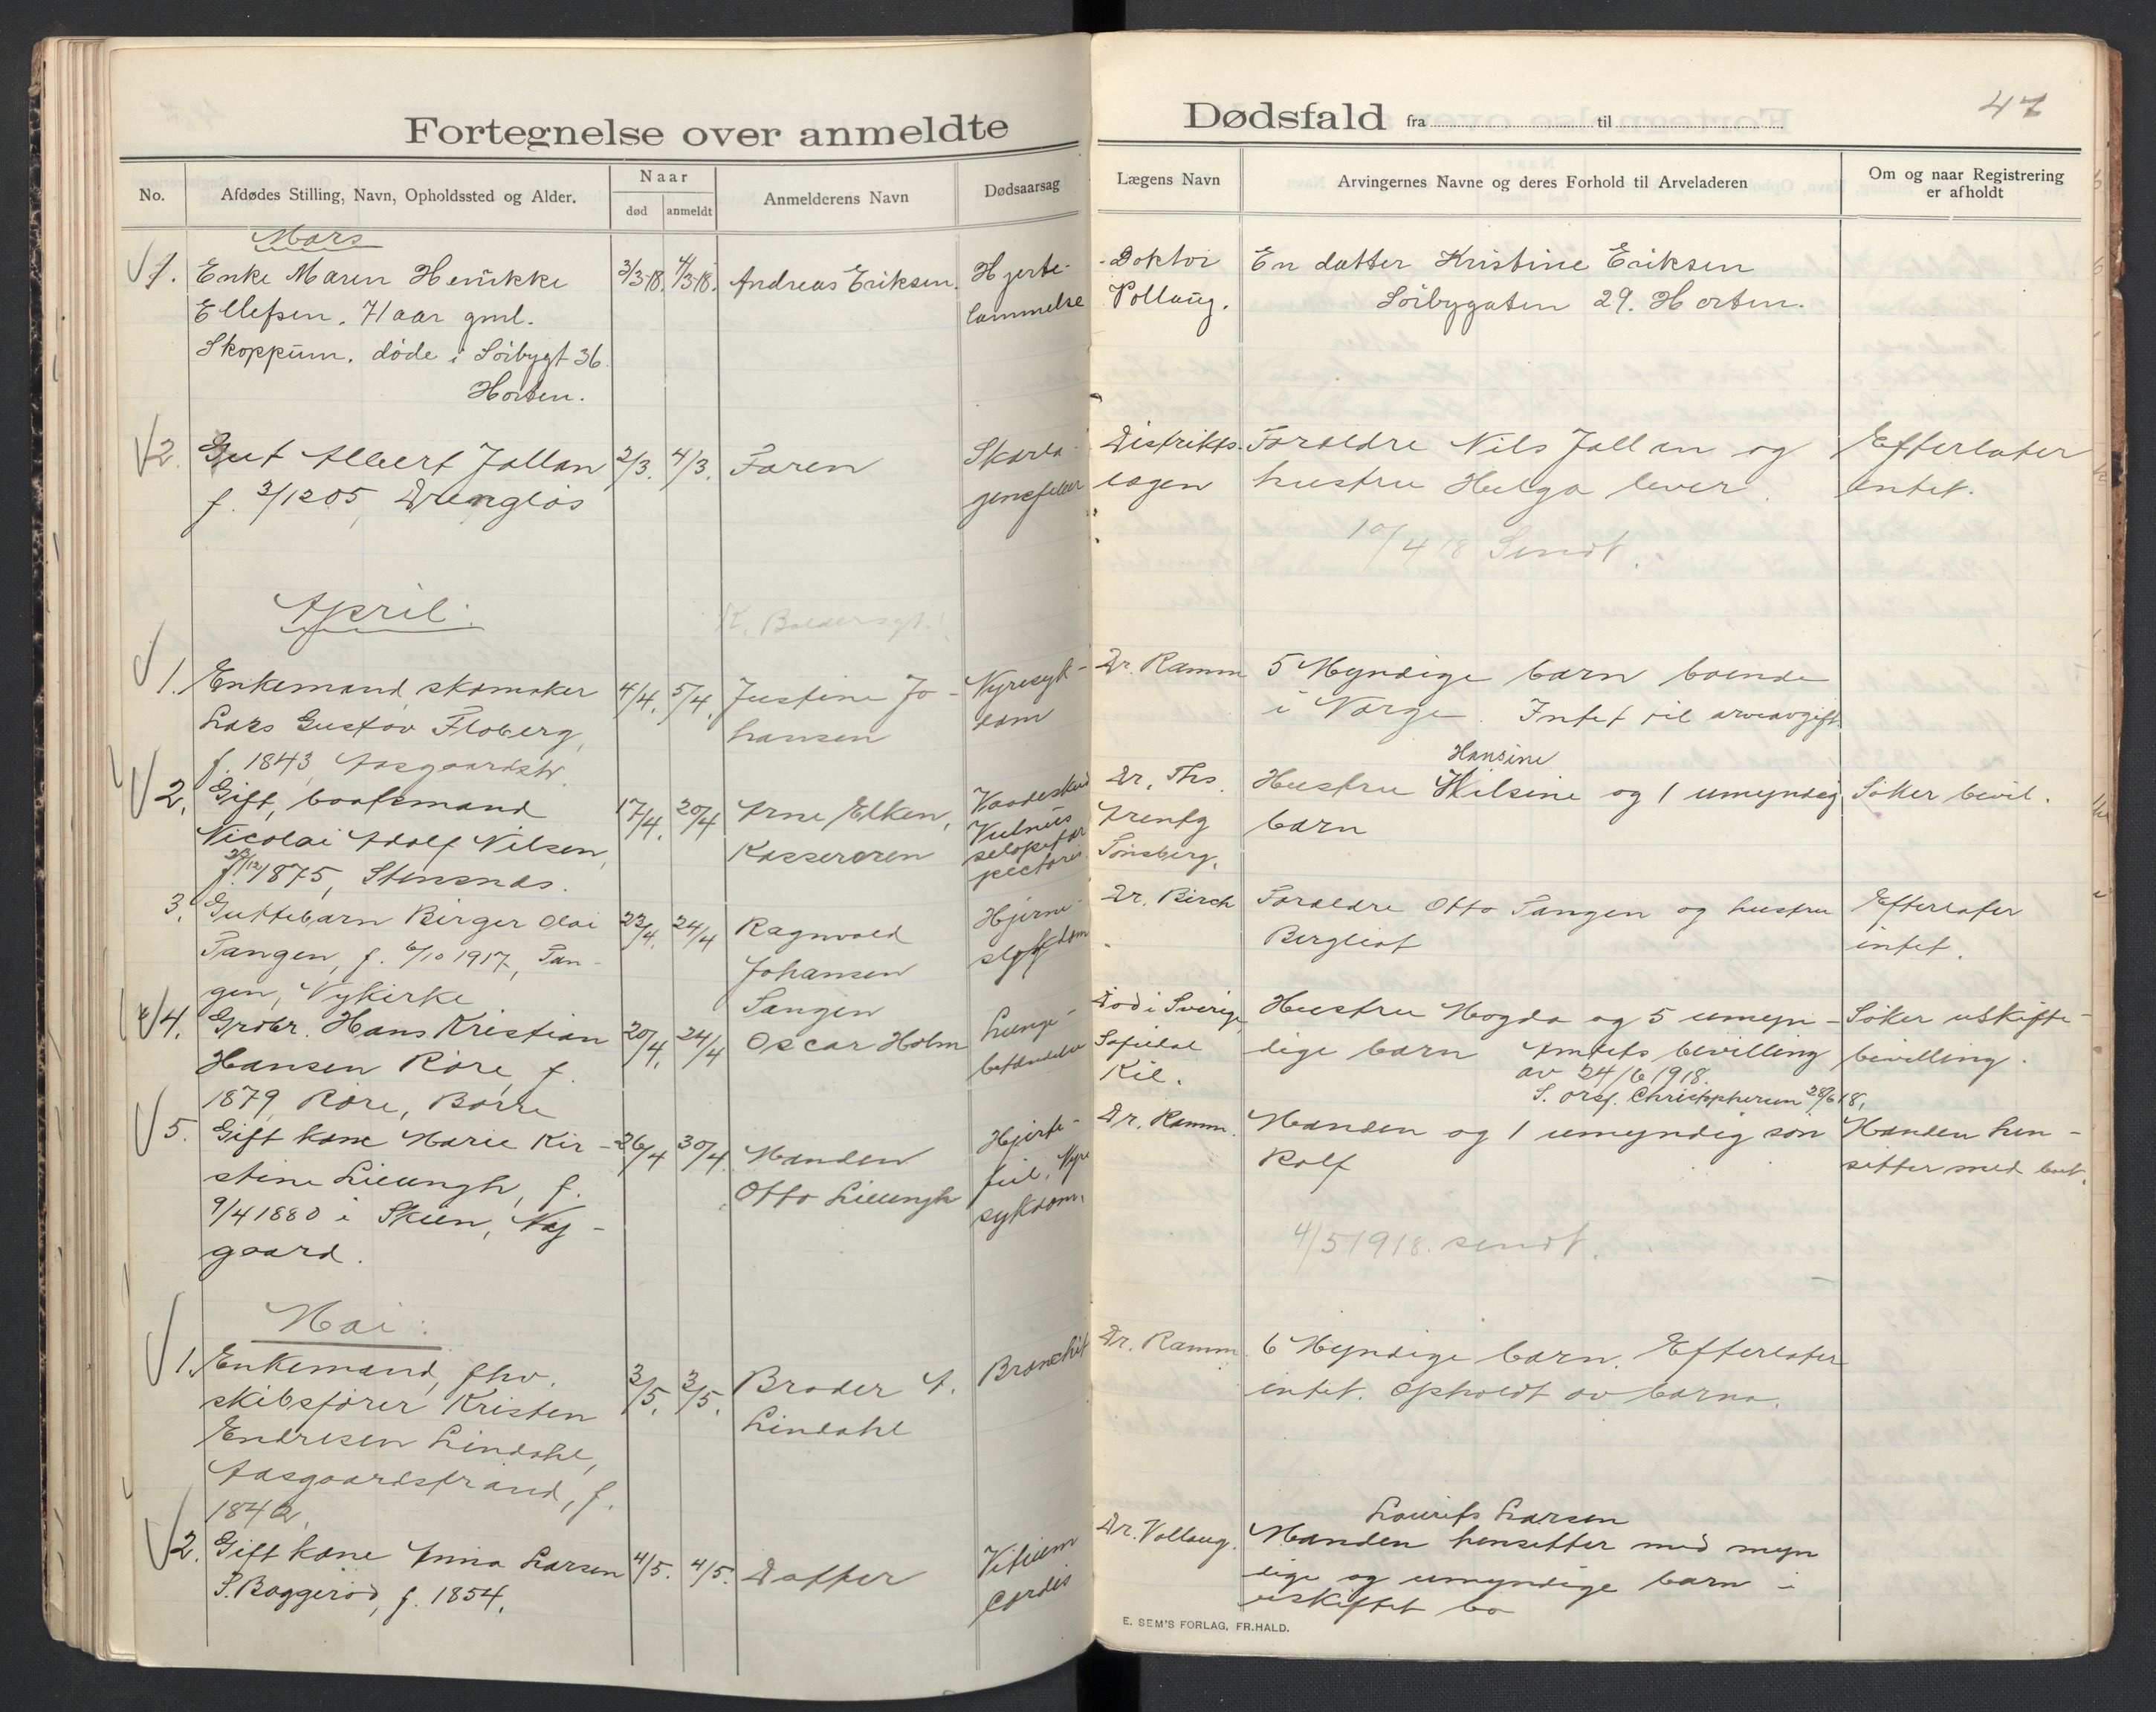 Fortegnelse over anmeldte
No.
Afdødes Stilling, Navn, Opholdssted og Alder.
Naar
død
anmeldt
Anmelderens Navn
Dødsaarsag
Mars
1. Enke Maren Henrikke 3/3-18. 4/3-18. Andreas Eriksen. Hjerte-
Ellefsen. 71 aar gml. lammelse
Skoppum. døde i Sörbygt 36
Horten.
2. Gut Albert Jallan 2/3. 4/3. Faren Skarla-
f. 3/12 05,
April.
1. Enkemand, skomaker 4/4. 5/4. Justine Jo- Nyresyk-
Lars Gustav Floberg, hansen dom
f. 1843 Aasgaardstr.
2. Gift, baatsmand 17/4. 20/4 Arne Elken, Vaadeskud
Nicolai Adolf Nilsen, Kassereren Vulnus
1875, Stensnæs. pectoris
3. Guttebarn Birger Olai 23/4. 24/4 Ragnvald Hjerne-
Tangen, f. 6/10 1917, Tan- Johansen sygdom
gen, Nykirke Tangen
4. Grdbr. Hans Kristian 20/4. 24/4 Oscar Holm Lunge-
Hansen Røre, f. betændelse
1879, Røre, Borre
5. Gift kone Marie Kir- 26/4 30/4 Manden Hjerte-
stine Lieungh, f. Otto Lieungh feil, Nyre
9/4 1880 i Skien, Ny- sykdom.
gaard.
Mai:
1. Enkemand, fhv. 3/5. 3/5. Broder A. Bronchit
skibsfører Kristen Lindahl
Endresen Lindahl,
Aasgaardstrand, f.
1842.
2. Gift kone Anna Larsen 4/5. 4/5. Datter Vitium
S. Baggerød, f. 1854. Cordis
Dødsfald fra til
47
Lægens Navn
Arvingernes Navne og deres Forhold til Arveladeren
Om og naar Registrering
er afholdt
Doktor En datter Kristine Eriksen
Vollaug. Sörbygaten 29. Horten.
Distrikts- Forældre Nils Jallan og Efterlater
lægen hustru Helga lever. intet.
10/4 18 Sendt.
Dr. Ramm 5 Myndige barn boende
i Norge. Intet til arveavgift.
Hansine
Dr. Ths. Hustru Hilsine og 1 umyndig Søker bevil.
Arentz barn
Tönsberg.
Dr. Birch Forældre Otto Tangen og hustru Efterlater
Bergliot intet.
Død i Sverige, Hustru Magda og 5 umyn- Søker uskifte-
dige barn Amtets bevilling bevilling.
Kil. av 24/6 1918.
S. orsf. Christophersen 28/6 18.
Dr. Ramm. Manden og 1 umyndig søn Manden hen-
Rolf sitter med boet.
4/5 1918. sendt.
Dr. Ramm 6 Myndige barn. Efterlater
intet. Opholdt av barna.
Laurits Larsen
Dr. Vollaug. Manden hensitter med myn
dige og umyndige barn i
uskiftet bo
E. SEM'S FORLAG, FR.HALD.